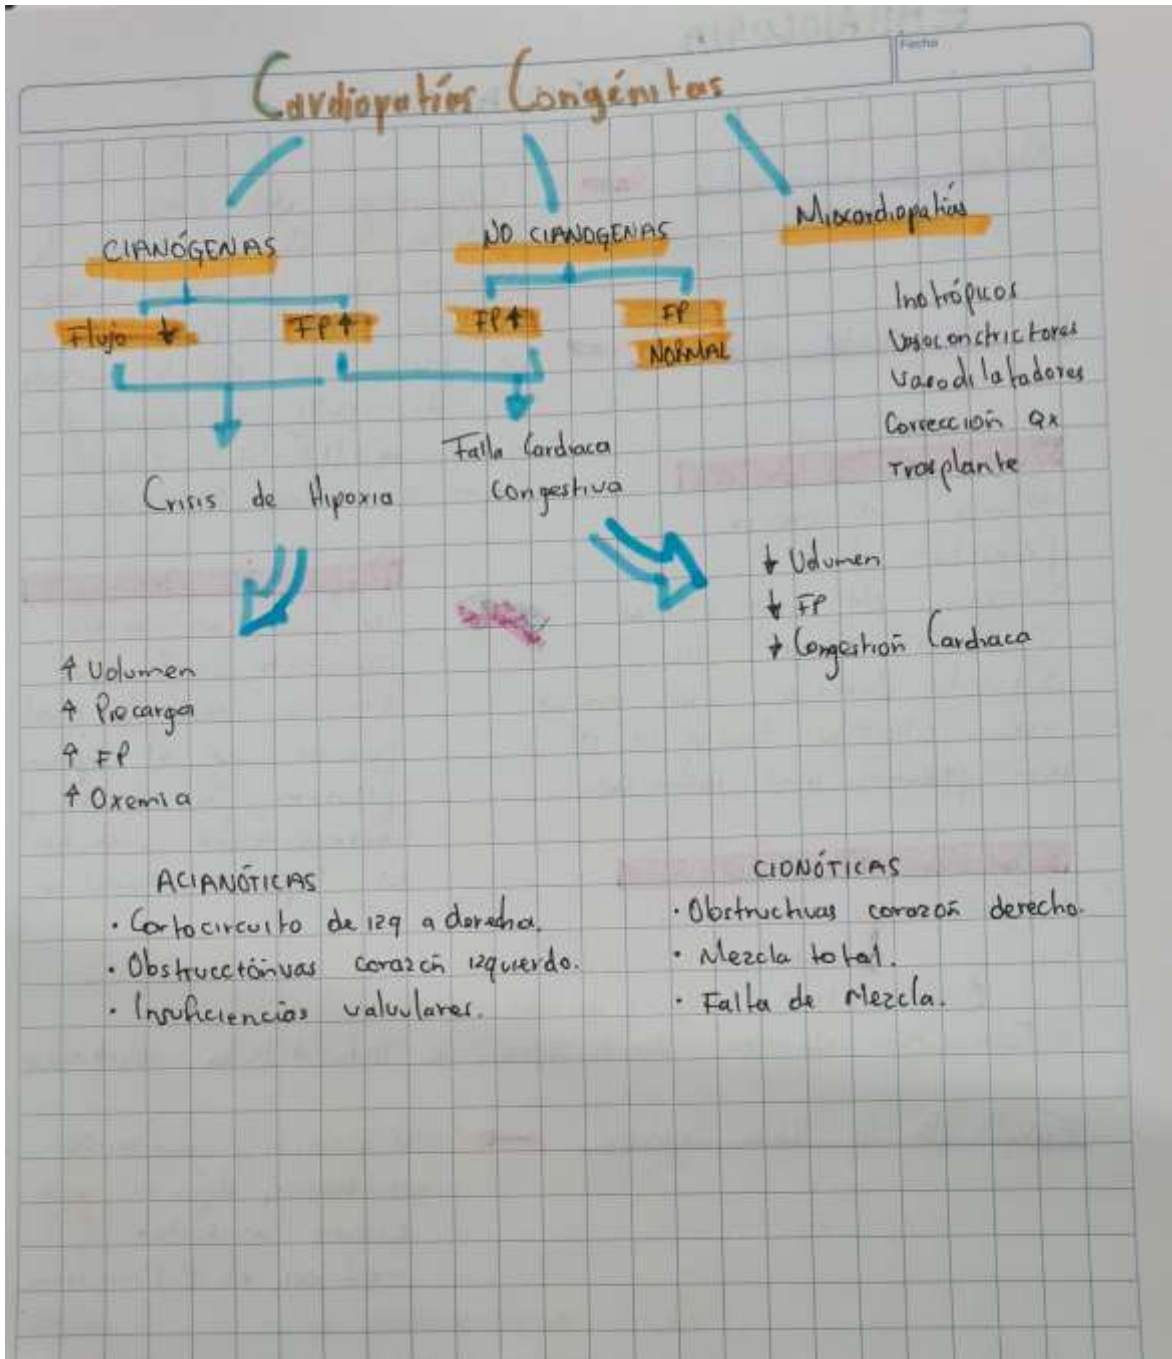 Fecha
Cardiopatías Congénitas
CIANÓGENAS
NO CIANOGENAS
Miocardiopatías
Flujo ↓
FP↑
FP↑
FP
NORMAL
Inotrópicos
Vasoconstrictores
Vasodilatadores
Corrección Qx
Trasplante
Crisis de Hipoxia
Falla Cardiaca
Congestiva
↓ Volumen
↓ FP
↓ Congestión Cardiaca
↑ Volumen
↑ Precarga
↑ FP
↑ Oxemia
ACIANÓTICAS
· Cortocircuito de izq a derecha.
· corazón izquierdo.
· Insuficiencias valvulares.
CIONÓTICAS
· Obstructivas corazón derecho.
· Mezcla total.
· Falta de Mezcla.